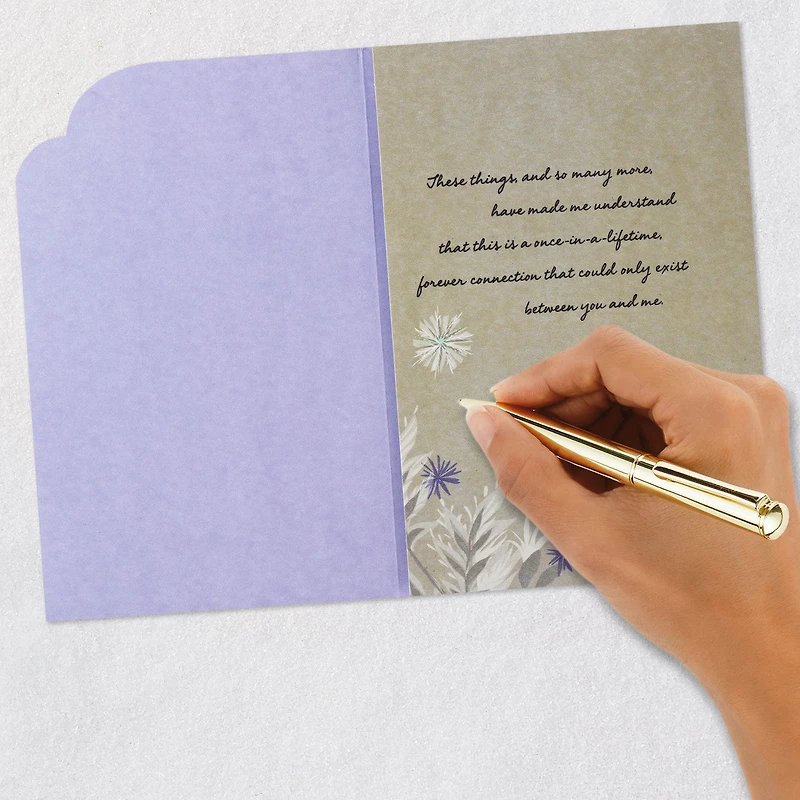 These things, and so many more,
have made me understand
that this is a once-in-a-lifetime,
forever connection that could only exist
between you and me.